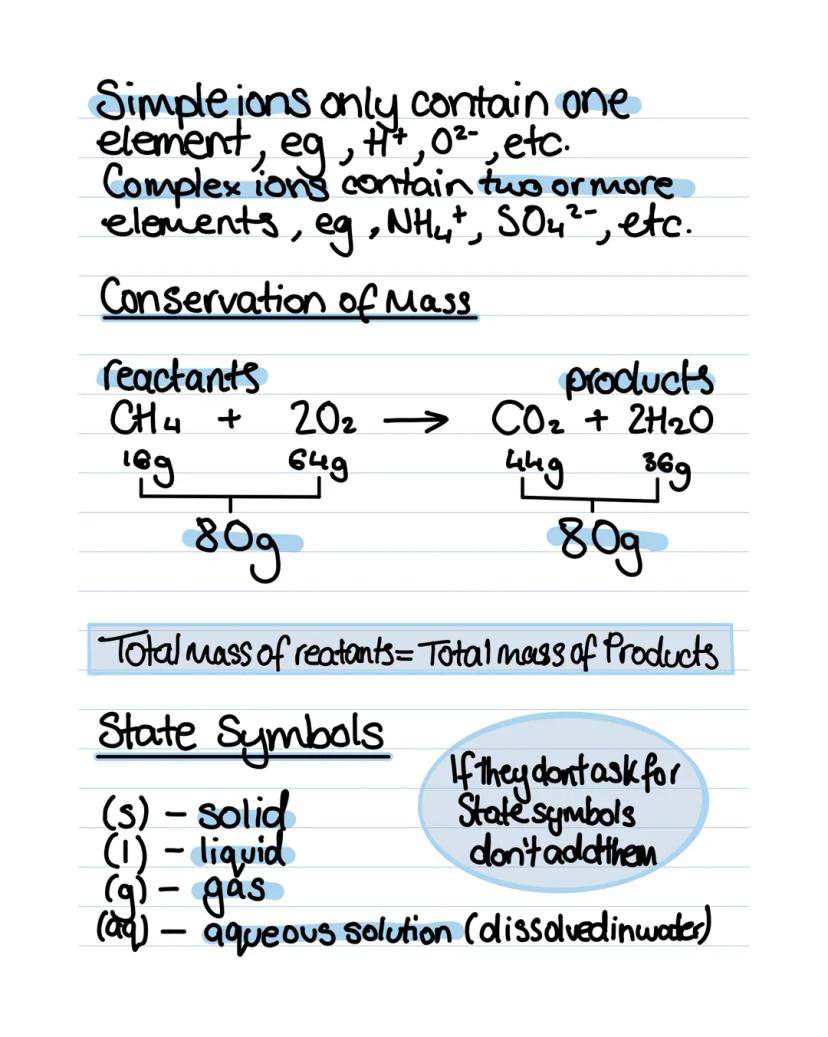 Simple ions only contain one
element, eg, H⁺, O²⁻, etc.
Complex ions contain two or more
elements, eg, NH₄⁺, SO₄²⁻, etc.
Conservation of Mass
reactants products
CH₄ + 2O₂ → CO₂ + 2H₂O
16g 64g 44g 36g
80g 80g
Total mass of reatants = Total mass of Products
State Symbols
If they dont ask for
State symbols
don't add them
(s) – solid
(l) – liquid
(g) – gas
(aq) – aqueous solution (dissolved in water)